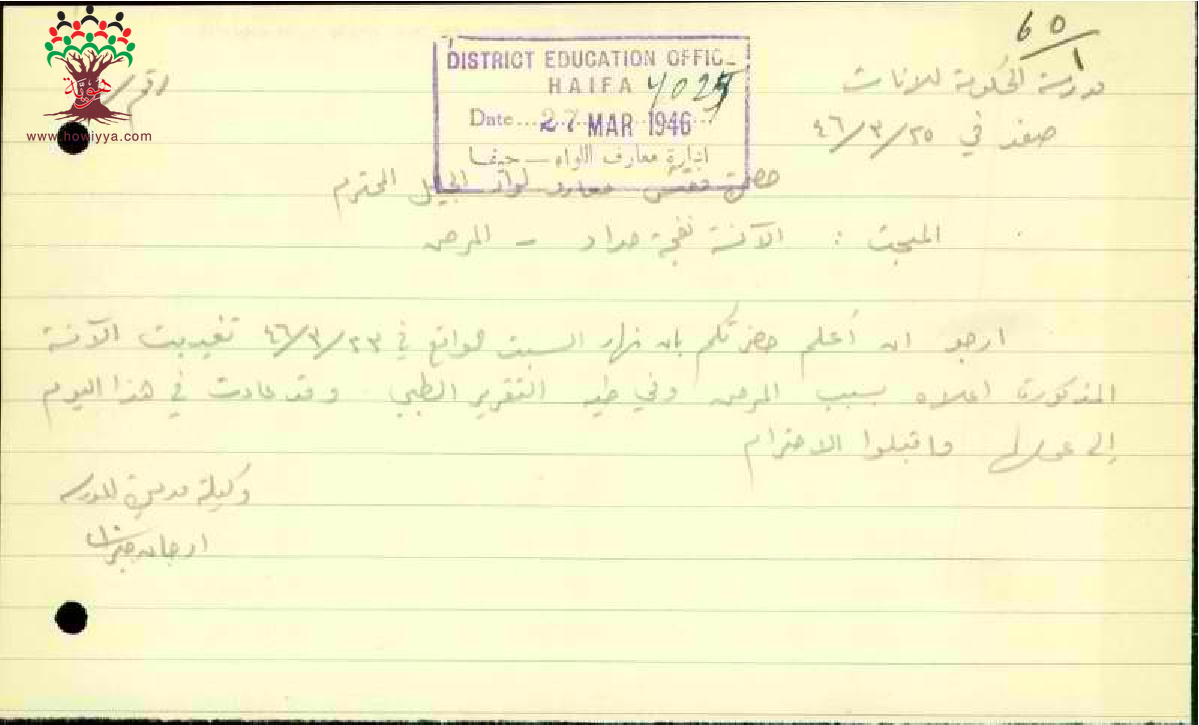 60/1
مدرسة الحكومة للاناث
رقم/
صفد في ٤٦/٣/٢٥
هوية
www.howiyya.com
DISTRICT EDUCATION OFFICE
HAIFA 4025
Date...27 MAR 1946
ادارة معارف اللواء — حيفا
حضرة مفتش معارف لواء الجليل المحترم
المبحث : الآنسة حداد - المرض
ارجو ان أعلم حضرتكم بان نهار السبت الواقع في ٤٦/٣/٢٣ تغيبت الآنسة
المذكورة اعلاه بسبب المرض وفي طيه التقرير الطبي وقد عادت في هذا اليوم
إلى عملها واقبلوا الاحترام
وكيلة مديرة المدرسة